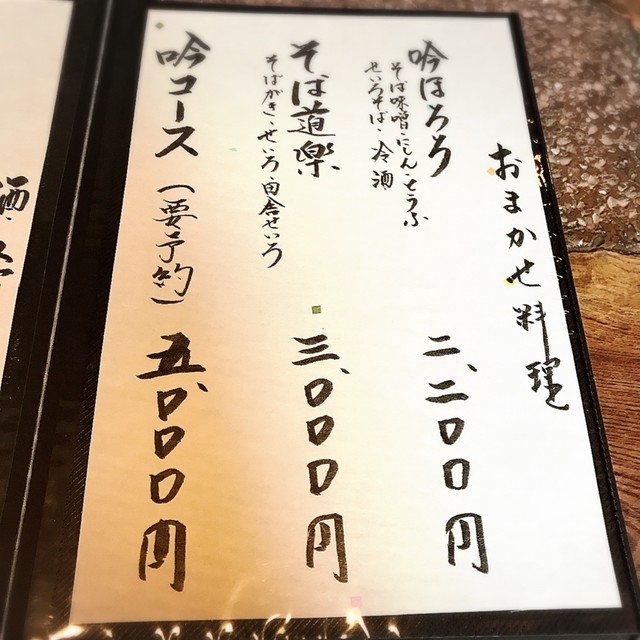 おまかせ料理
吟ほろろ 二、二〇〇円
そば味噌・にしん・とうふ
せいろそば・冷酒
そば道楽 三、〇〇〇円
そばがき・せいろ田舎せいろ
吟コース（要予約） 五、〇〇〇円
酒